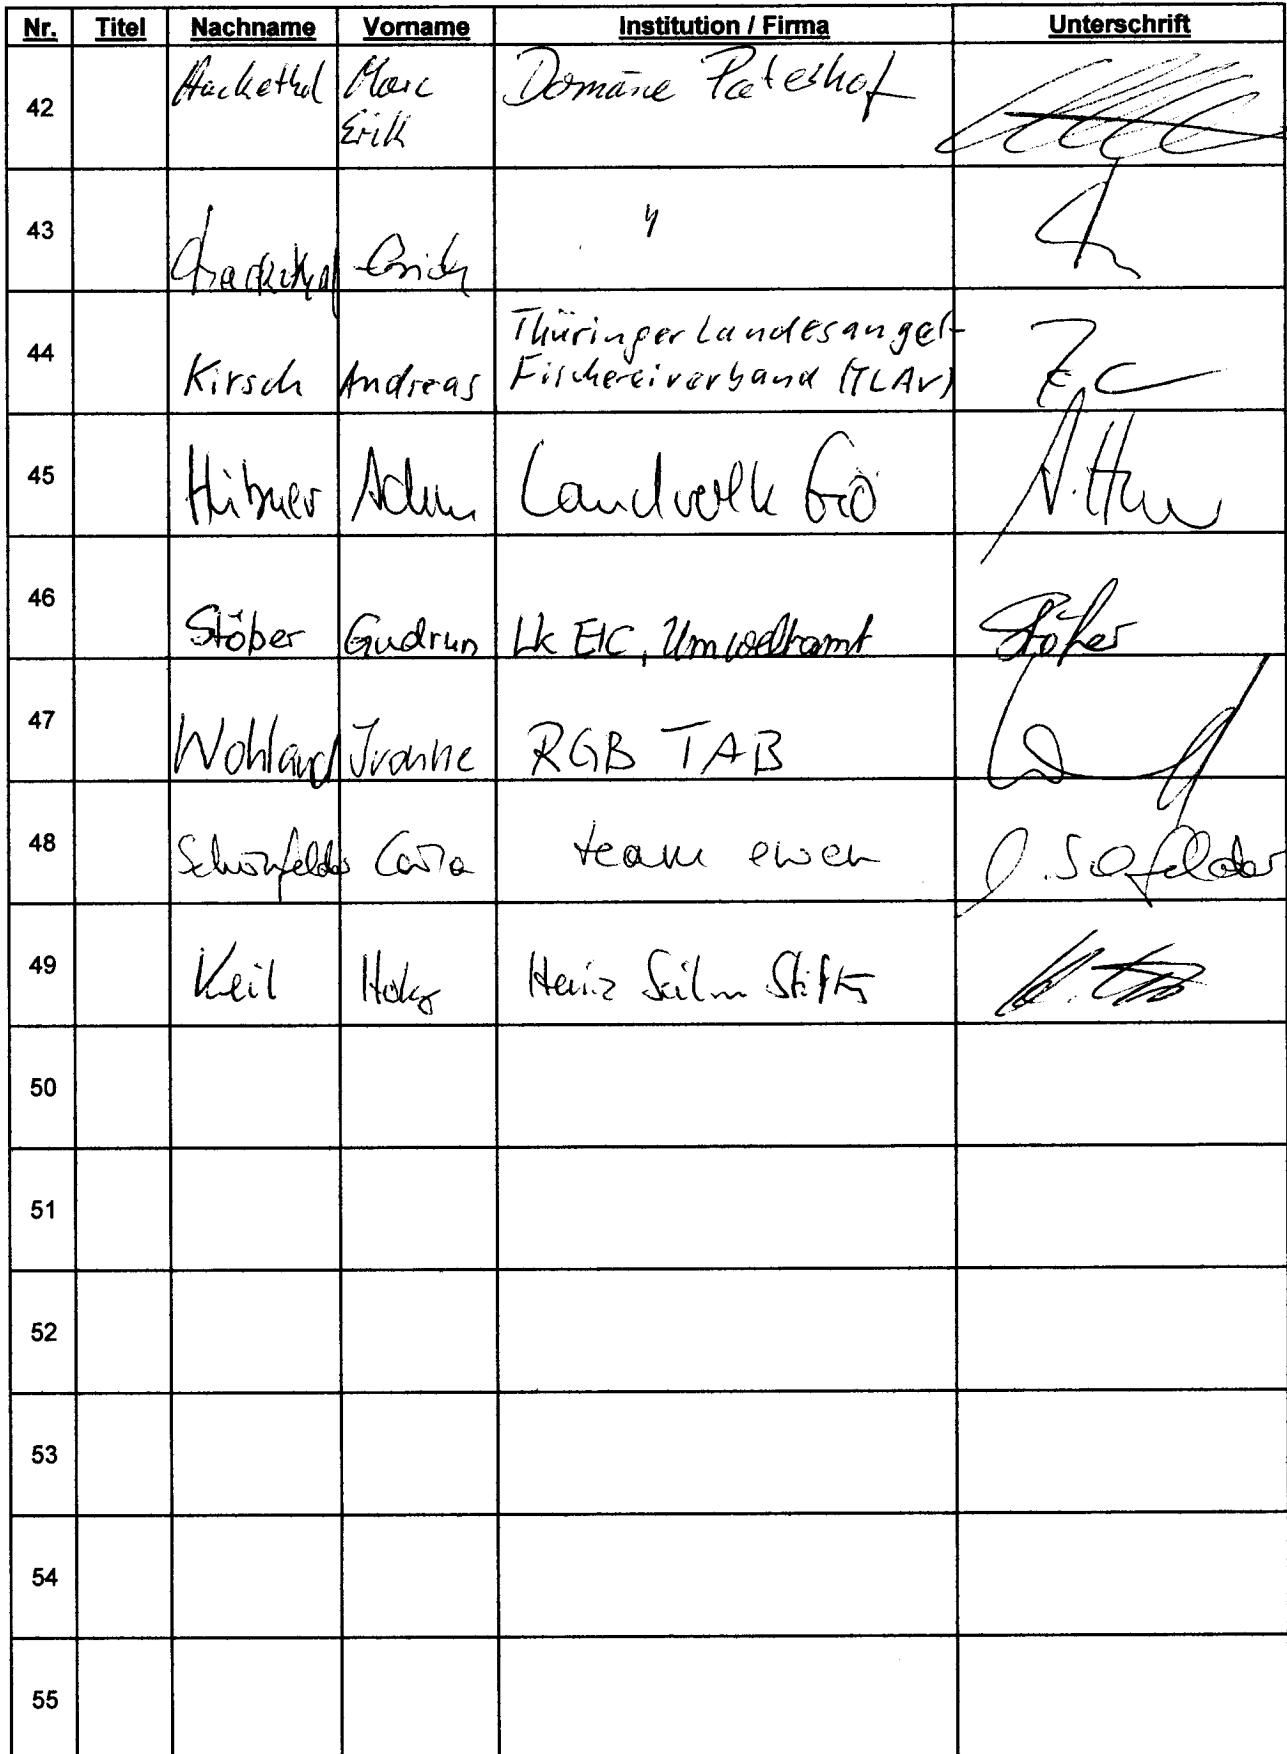 Nr. Titel Nachname Vorname Institution / Firma Unterschrift
42 Hackethal Marc Domäne Paterhof
Erik
43 Hackethal "
44 Thüringer Landesangel-
Kirsch Andreas Fischereiverband (TLAV)
45 Hübner Landvolk Gö
46 Stöber Gudrun LK EIC, Umweltamt Stöber
47 Wohland Ivonne RGB TAB
48 Schönfelder Carla team ewen
49 Keil Holger Heinz Sielmann Stiftung
50
51
52
53
54
55